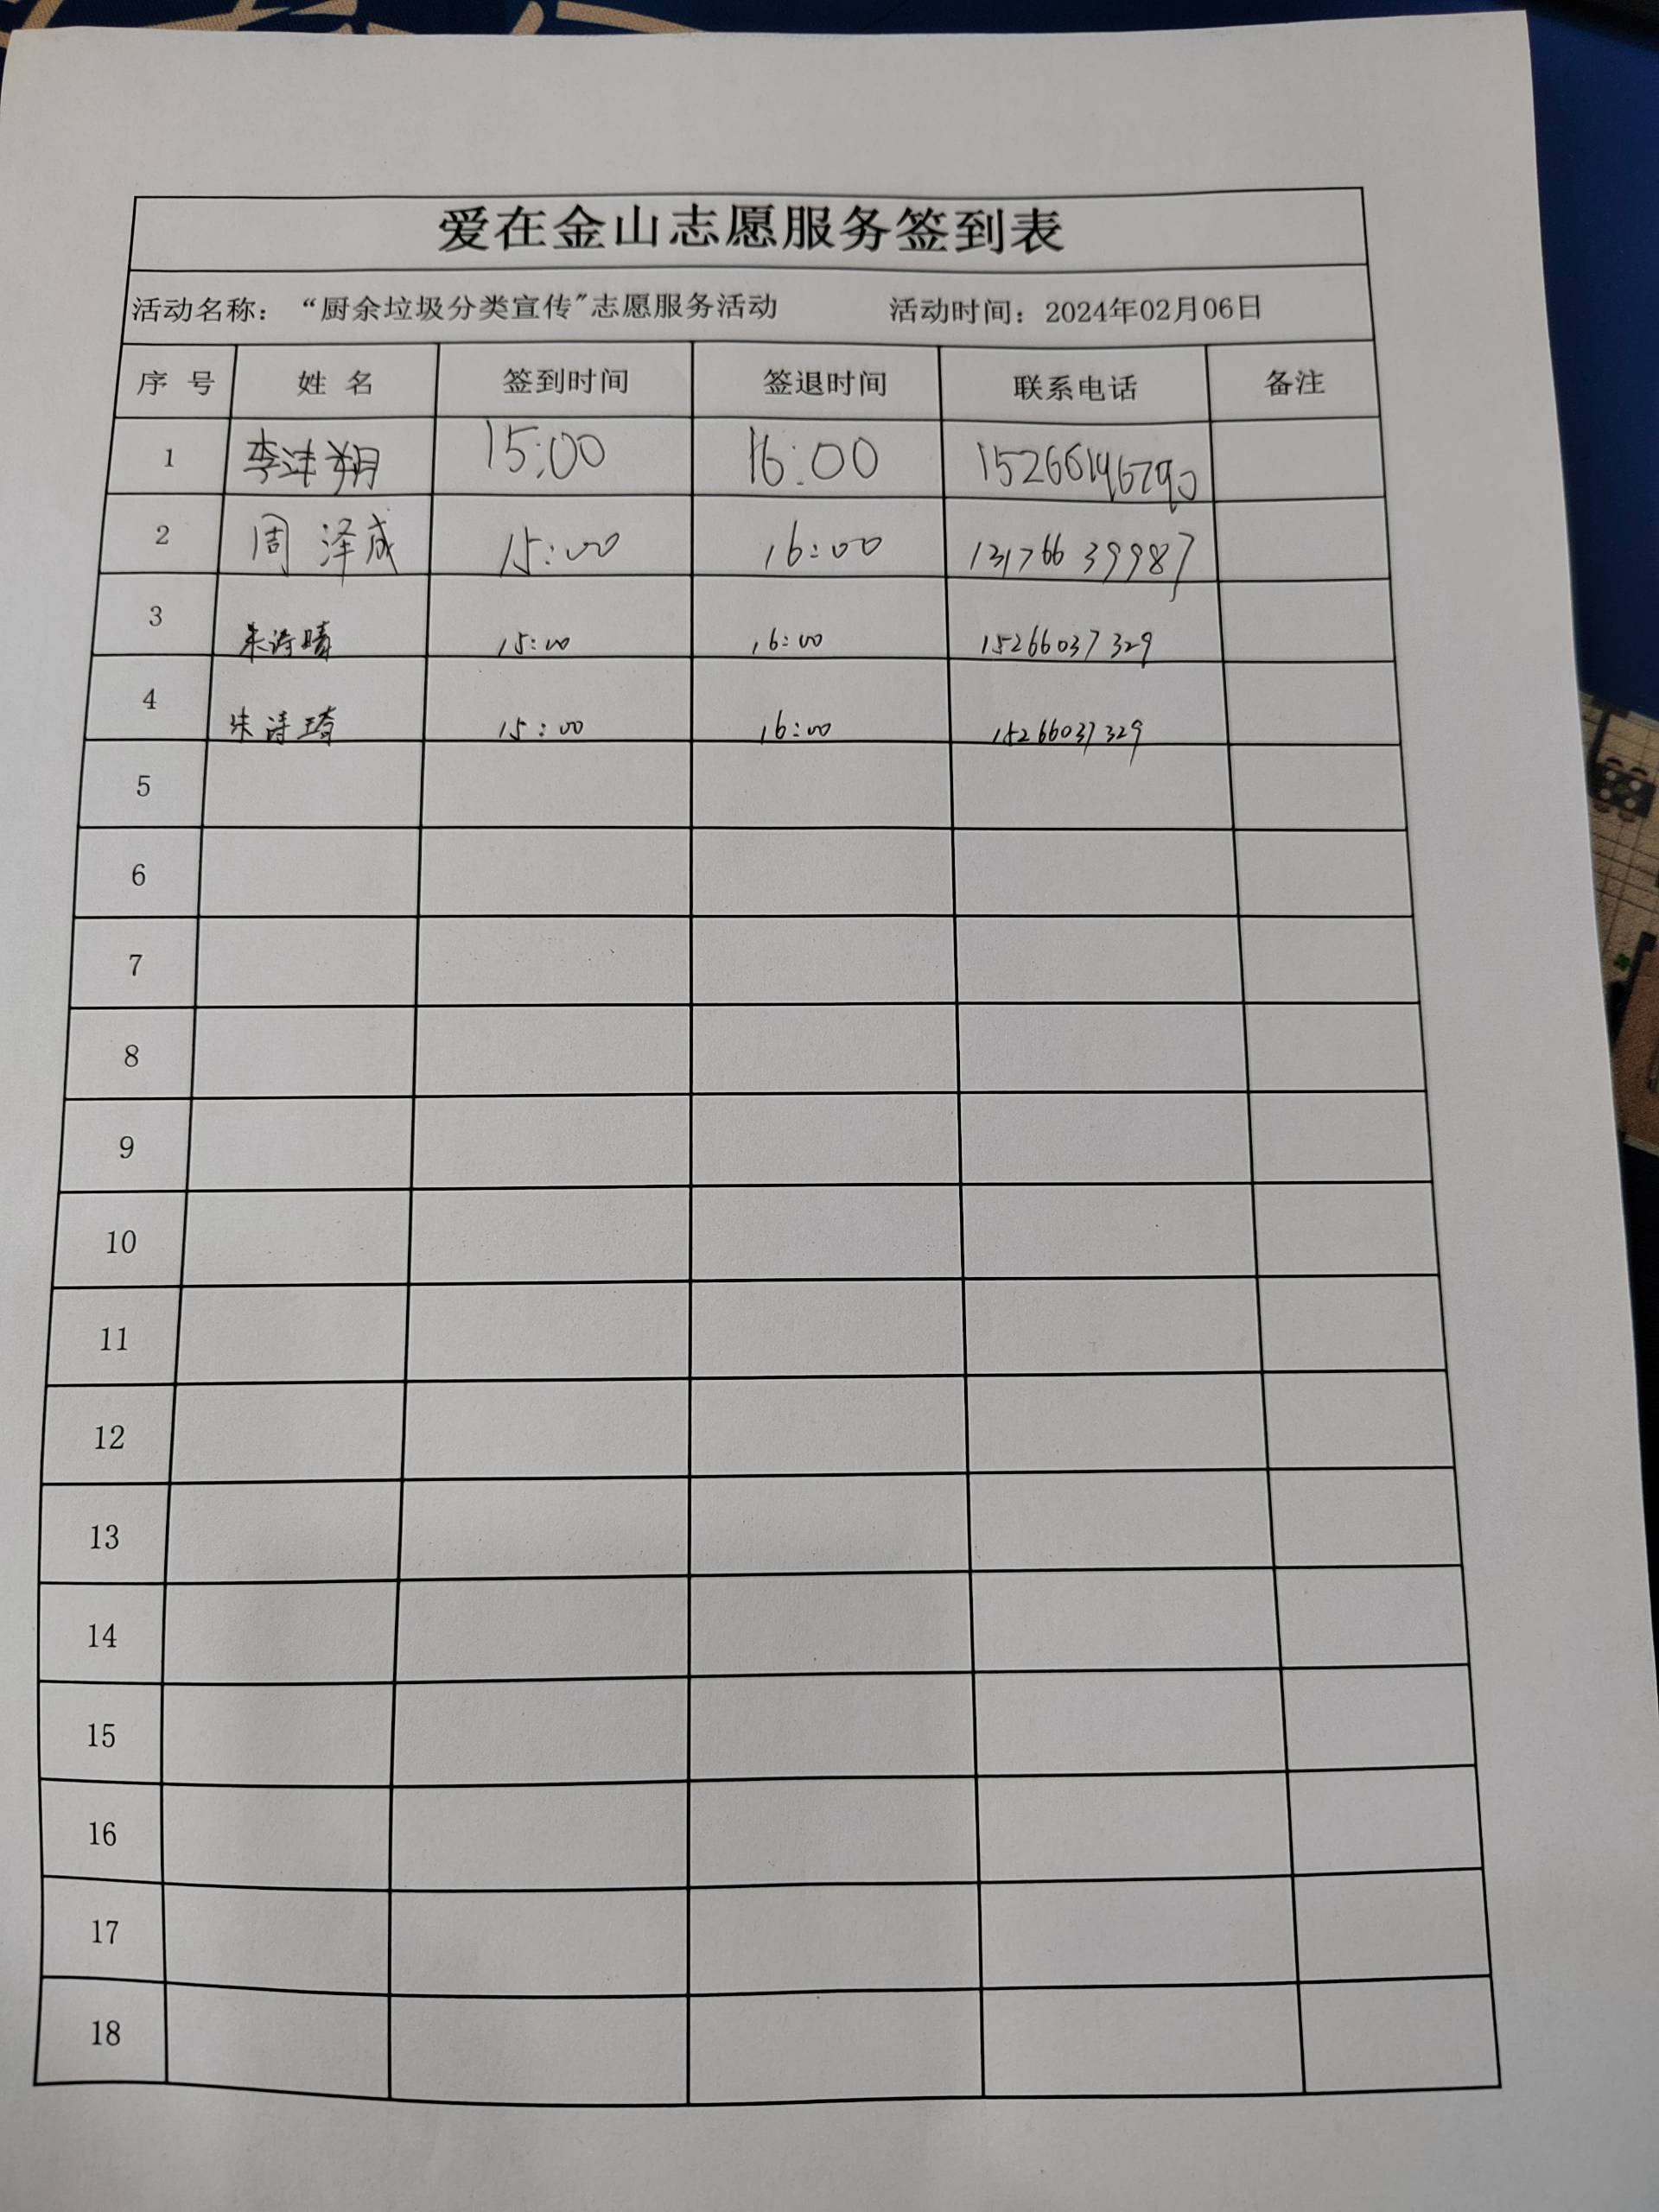 爱在金山志愿服务签到表
活动名称：“厨余垃圾分类宣传"志愿服务活动 活动时间：2024年02月06日
序 号 姓 名 签到时间 签退时间 联系电话 备注
1 李沣朔 15:00 16:00 15266196790
2 周 泽成 15:00 16:00 13176639987
3 朱诗晴 15:00 16:00 15266037329
4 朱诗琦 15:00 16:00 15266037329
5
6
7
8
9
10
11
12
13
14
15
16
17
18